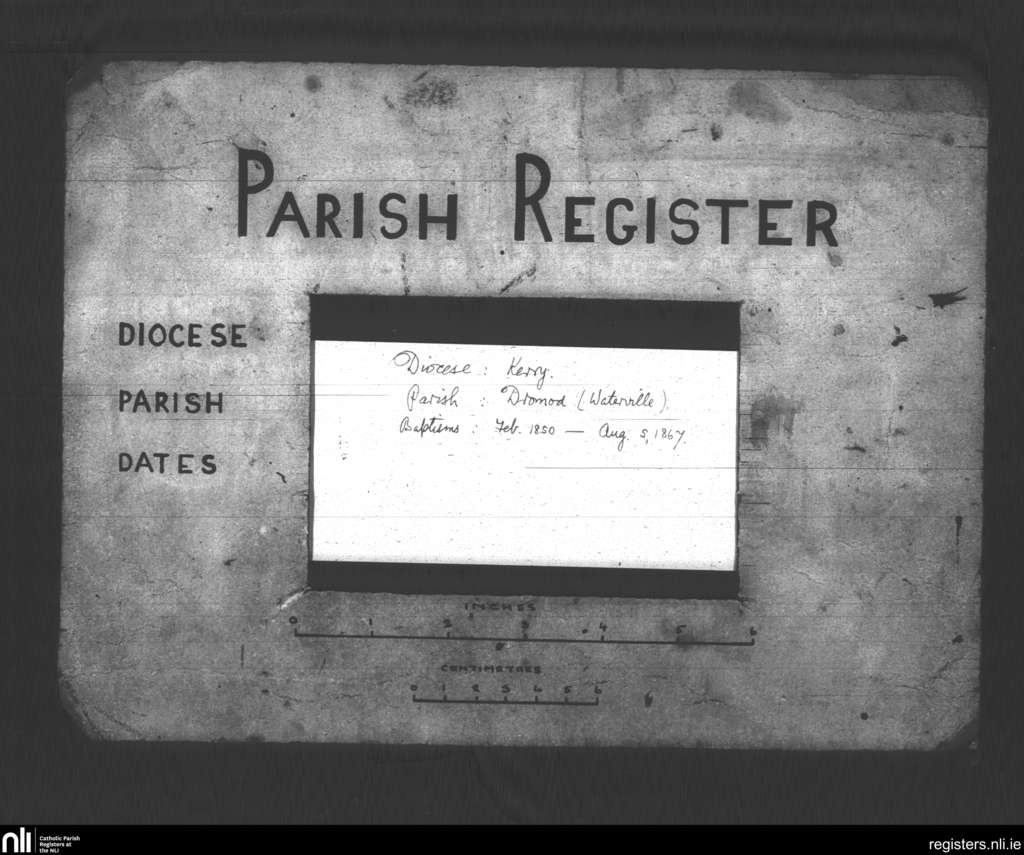 PARISH REGISTER
DIOCESE
PARISH
DATES
Diocese : Kerry.
Parish : Dromod (Waterville).
Baptisms : Feb. 1850 — Aug. 5, 1867.
INCHES
0 1 2 3 4 5 6
CENTIMETRES
0 1 2 3 4 5 6
nli
Catholic Parish
Registers at
the NLI
registers.nli.ie